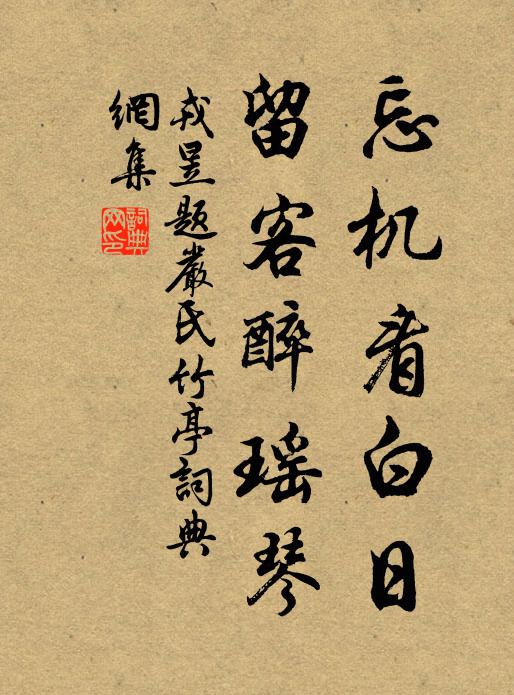 忘机看白日
留客醉瑶琴
戎昱题嚴氏竹亭詞典
網集
詞典
网印